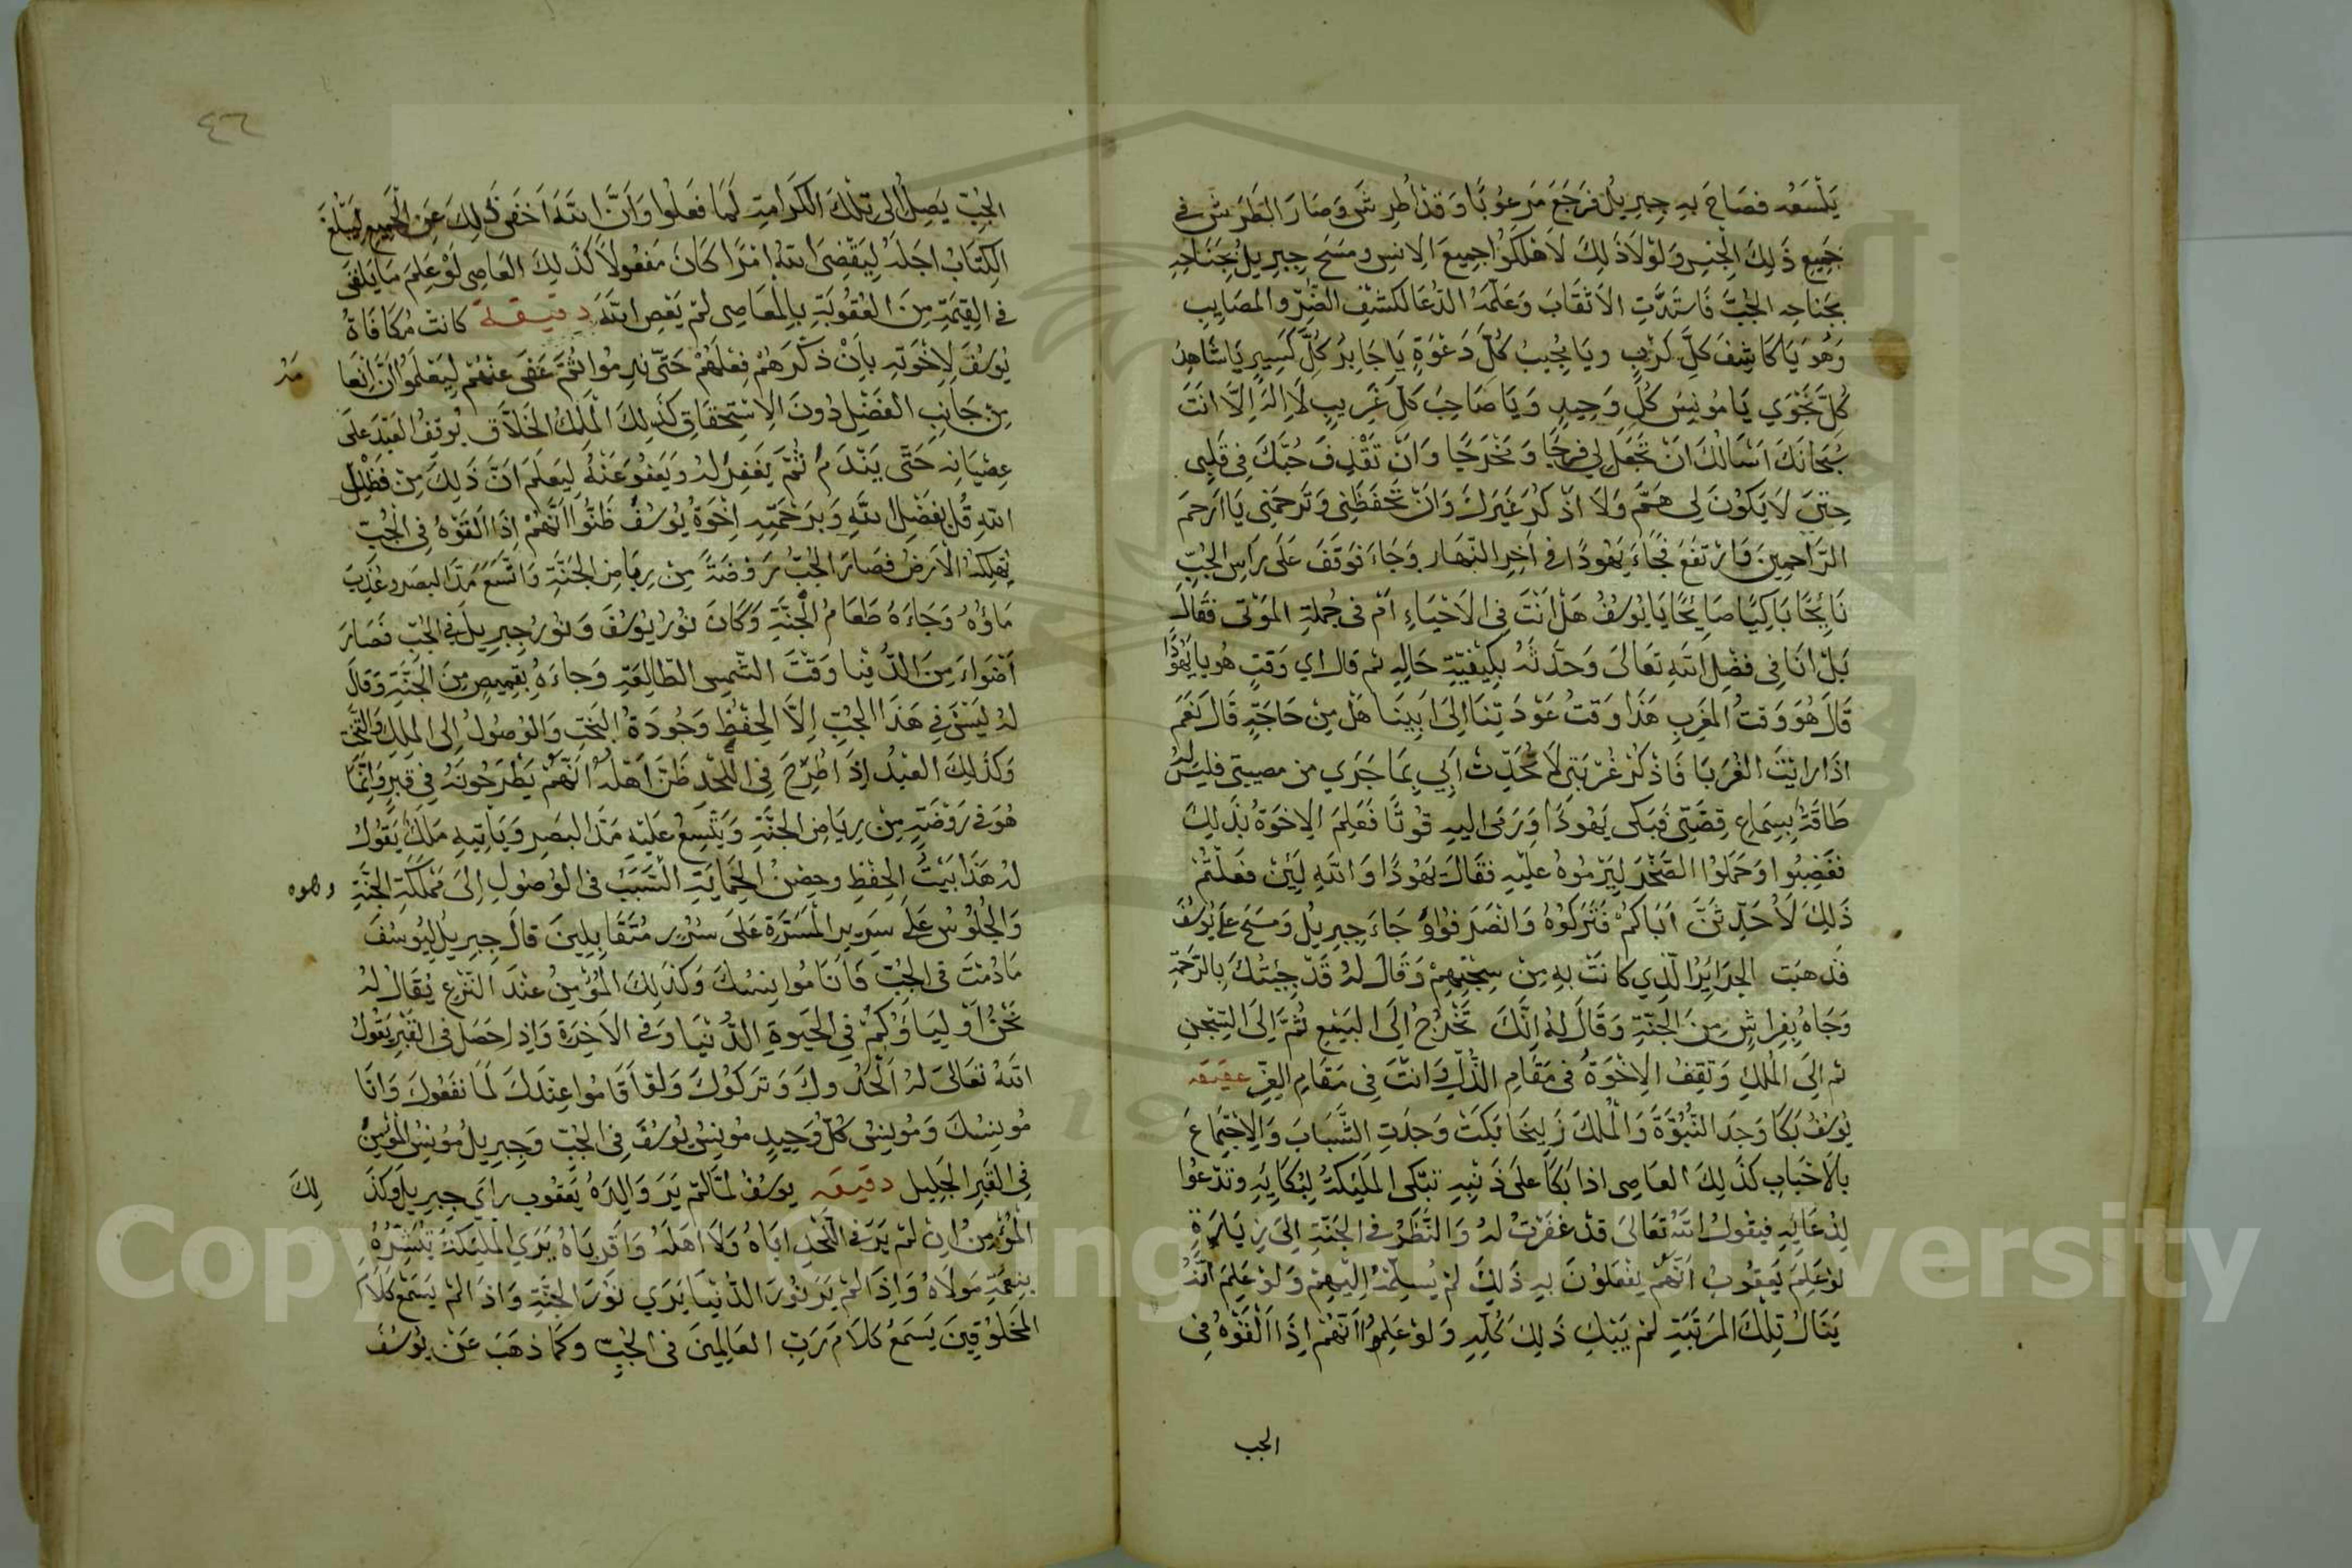 يَلْسَعُه فصَاحَ بهِ جِبرِيلُ فرَجَعَ مَرعُوبًا وَقدْ أُطرِشَ وَصَارَ الطَرشُ في
جَميعِ ذَلِكَ الجِنسِ وَلوْلَا ذَلِكَ لَاهْلَكُوا جمِيعَ الاِنسِ ومَسَحَ جِبرِيلُ بجَنَاحِهِ
بجَناحِهِ الجُبَّ فَاستَدَّتِ الاَثْقَابَ وَعَلَّمَهُ الدُّعَا لكَشْفِ الضُّرِّ والمصَايِبِ
وَهُوَ يَا كَاشِفَ كلِّ كَرْبٍ ويَا مُجِيبُ كُلِّ دَعْوَةٍ يَا جَابِرُ كلِّ كَسِيرٍ يَا شَاهِدُ
كُلِّ نَجْوَي يَا مُونِسَ كُلِّ وَحِيدٍ وَيَا صَاحِبَ كلِّ غَرِيبٍ لَا اِلَهَ اِلَّا اَنتَ
سُبحَانَكَ اَسْاَلُكَ اَنْ تَجْعَل لِي فرَجًا وَمَخْرَجًا وَاَنْ تَقْذِفَ حُبَّكَ فِي قَلْبِي
حتىَّ لَا يَكُونَ لِي هَمّ وَلَا اَذْكُرَ غَيرَكَ وَاَنْ تَحْفَظَنِي وَتَرحَمَنِي يَا اَرحَمَ
الرَّاحِمِينَ فَارْتفَعَ فجَاءَ يَهُودَا في اَخِرِ النَّهَارِ وَجَاءَ فوَقَفَ عَلَى رَاسِ الجُبِّ
نَايِحًا بَاكِيًا صَايِحًا يَا يُوسُفُ هَلْ اَنتَ فِي الاَحْيَاءِ اَمْ فى جُملةِ المَوْتى فقَالَ
بَلْ اَنَا فِي فضْلِ اللهِ تعَالَى وَحَدَّثَهُ بِكَيْفِيَّةِ حَالِهِ ثم قال اي وَقتٍ هُو يا يَهُوْدَا
قَالَ هُوَ وَقتُ المَغرِبِ هَذَا وَقتُ عَوْدَتِنَا اِلىَ اَبِينَا هَلْ مِنْ حَاجَةٍ قَالَ نَعَمَ
اذَا رَايْتَ الغُرَبَا فَاذْكُرْ غُرْبَتِي لَا تُحَدِّثْ اَبِي بِمَا جَرَي من مصيبتي فليسَ لهُ
طَاقَةٌ بِسِمَاعِ قِصَّتِي فَبَكَى يَهُودَا وَرَمَى اليهِ قوْتًا فعَلِمَ الاِخوَةُ بذَلِكَ
فغَضِبُوا وَحَمَلُوا الصَّخْرَ لِيَرْمُوهُ عليْهِ فقَالَ يَهُودَا وَاللهِ لَئِنْ فعَلْتُمْ
ذَلِكَ لَاُحَدِّثَنَّ اَبَاكمُ فتَرَكوُهُ وَانْصَرَفوُا جَاءَ جِبرِيلُ وَمسَحَ علَى يُوسُفَ
فذهبَت الجَرَايِرُ الَّذِي كانَتْ بهِ مِنْ سِجْنِهِمْ وَقَالَ لهُ قَدْ جِئتُكَ بِالرَّحمَةِ
وَجَاهُ بفِرَاشٍ مِنَ الجَنَّةِ وَقَالَ لهُ اِنَّكَ تَخْرُج اِلىَ البَيْعِ ثُمَّ اِلىَ السِّجْنِ
ثم اِلىَ المُلكِ وَتَقِفُ الاِخْوَةُ فى مَقَامِ الذُّلِّ وَانْتَ فِي مَقَامِ العِزِّ عقيقه
يُوسُفُ بَكَا وَجَدَ النُّبُوَّةَ وَالْمُلكَ زَلِيخَا بَكَتْ وَجَدَتِ الشَّبَابَ وَالِاجْتِمَاعَ
بالَاحْبَابِ كذَلِكَ العَاصِى اذا بَكَا علَى ذَنبِهِ تَبكى المَليَكةُ لِبُكَائِهِ وتدْعُوا
لِدْعَايِهِ فيَقولُ اللهُ تعَالىَ قدْ غفَرْتُ لهُ وَالنَّظَرُ في الجَنَّةِ اِلىَ زِيَارَةٍ
لوْ عَلِمَ يَعقُوبُ اَنَّهُمْ يفْعَلوُنَ بهِ ذَلِكَ لمْ يُسلِّمْهُ اِلَيْهِمْ وَلوْ عَلِمَ اَنَّهُ
يَنَالُ تِلْكَ المَرتَبَةِ لمْ يَبْكِ ذَلِكَ كُلِّهِ وَلوْ عَلِمُوا اَنَّهُمْ اِذَا اَلقَوْهُ في
الجب
٤٦
الجُبِّ يَصِلُ الى تِلْكَ الكَرَامَةِ لَمَا فعَلُوا وَاَنَّ اللهَ اَخفَى ذَلِكَ عَنِ الجَمِيعِ لِيَبْلُغَ
الكِتَابُ اجَلَهُ لِيَقْضِىَ اللهُ امْرًا كَانَ مَفعُولًا كذَلِكَ العَاصِى لوْ عَلِمَ مَا يَلقَى
في القِيمَةِ مِنَ العُقُوبَةِ بِالمعَاصِى لمْ يَعْصِ اللهَ دقيقة كانَتْ مُكَافَاةُ
يُوسُفَ لِاِخْوَتِهِ بِاَنْ ذَكَّرَهُمْ فِعْلَهُمْ حَتَّى نَدِمُوا ثُمَّ عَفَى عَنْهُمْ لِيَعْلَمُوا اَنَّ اِنْعَا
مَهُ
مِنْ جَانِبِ الفَضْلِ دُونَ الاِسْتِحقَاقِ كَذَلِكَ الْمَلِكُ الخَلَّاقُ يُوقِفُ العَبْدَ علَى
عِصْيَانِهِ حَتَّى يَنْدَمُ ثُمَّ يَغفِرُ لهُ وَيَعفُو عَنْهُ لِيَعلَمَ اَنَّ ذَلِكَ مِنْ فظْلِ
اللهِ قُل بفَضْلِ اللهِ وَبرَحْمَتِهِ اِخْوَةُ يُوسُفَ ظَنُّوا اَنَّهُمْ اِذَا اَلقَوْهُ فِي الْجُبِّ
يُهلِكهُ الاَرضُ فصَارَ الجُبُّ رَوْضَةً مِنْ رِيَاضِ الجَنَّةِ وَاتّسَعَ مَدَّ البصَرِ وعَذُبَ
مَاؤُهُ وَجَاءَهُ طَعَامُ الْجَنَّةِ وَكَانَ نُوْرُ يُوْسُفَ وَنوْرُ جِبرِيلَ فِي الجُبِّ فصَارَ
اَضْوَاءَ مِنَ الدُّنيَا وَقْتَ الشَّمسِ الطَّالِعَةِ وَجاءَهُ بقَمِيصٍ مِنَ الجَنَّةِ وَقَالَ
لهُ لَيْسَ فِي هَذَا الجُبِّ اِلَّا الحِفْظِ وَجُودَةُ البَختِ وَالوُصُولُ اِلى المُلكِ وَالتَّخْتِ
وَكذَلِكَ العَبْدُ اِذَا طُرِحَ فِي اللَّحْدِ ظَنَّ اَهْلهُ اَنَّهُمْ يَطْرَحُونَهُ فِي قبرٍ وَاِنَّمَا
هُوَ في رَوْضَةٍ مِنْ رِيَاضِ الجَنَّةِ وَيَتَّسِعُ عَلَيْهِ مَدَّ البصَرِ وَيَاتِيهِ مَلَكٌ يَقُولُ
لهُ هَذَا بَيْتُ الحِفْظِ وحِصْنُ الحِمَايَةِ السَّبَبُ فى الوُصُولِ اِلىَ مَملَكَةِ الجَنَّةِ
وَالجُلُوْسُ عَلَى سَرِيرِ المَسَرَّةِ عَلَى سُرُرٍ مُتَقَابِلِينَ قالَ جِبرِيلُ لِيُوسُفَ
مَا دُمْتَ فى الجُبِّ فَاَنَا مُوانِسُكَ وَكذَلِكَ المُؤْمِنُ عنْدَ النَّزعِ يُقَالُ لهُ
نَحْنُ اَوْلِيَاؤُكُمْ فِي الحَيَوةِ الدُّنْيَا وَفي الاَخِرَةِ وَاِذا حَصَلَ فى القَبْرِ يَقُوْلُ
اللهُ تعَالىَ لهُ اَلْحَدُوكَ وَتَرَكوُكَ وَلوْ اَقَامُوا عِنْدَكَ لَمَا نفَعُوكَ وَانَا
مُونِسُكَ وَمُونِسُ كُلِّ وَحِيدٍ مُونِسُ يُوسُفَ فِي الجُبِّ وَجِبرِيلُ مُونِسُ المُؤْمِنُ
فِي القَبرِ الجَلِيلِ دقيقه يوسُفُ لمَّا لمْ يَرَ وَالِدَهُ يَعقوُب رَاي جِبرِيلَ وَكذَ
لِكَ
المُؤمِنُ اِنْ لمْ يَرَ في اللَّحْدِ ابَاهُ وَلَا اَهلَهُ وَاَقرِبَاهُ يَرَي المَليَكةَ تُبَشِّرُهُ
بِنعمَةِ مَولَاهُ وَاِذَا لمْ يَرَ نُورَ الدُّنيَا يَرَي نُوْرَ الجَنَّةِ وَاذَا لمْ يَسمَعْ كَلَامَ
المَخلُوْقِينَ يَسمَعُ كلَامَ رَبِّ العَالمِينَ فى الجُبِّ وكمَا ذهَبَ عَنْ يُوسُفَ
Copyright © King Saud University